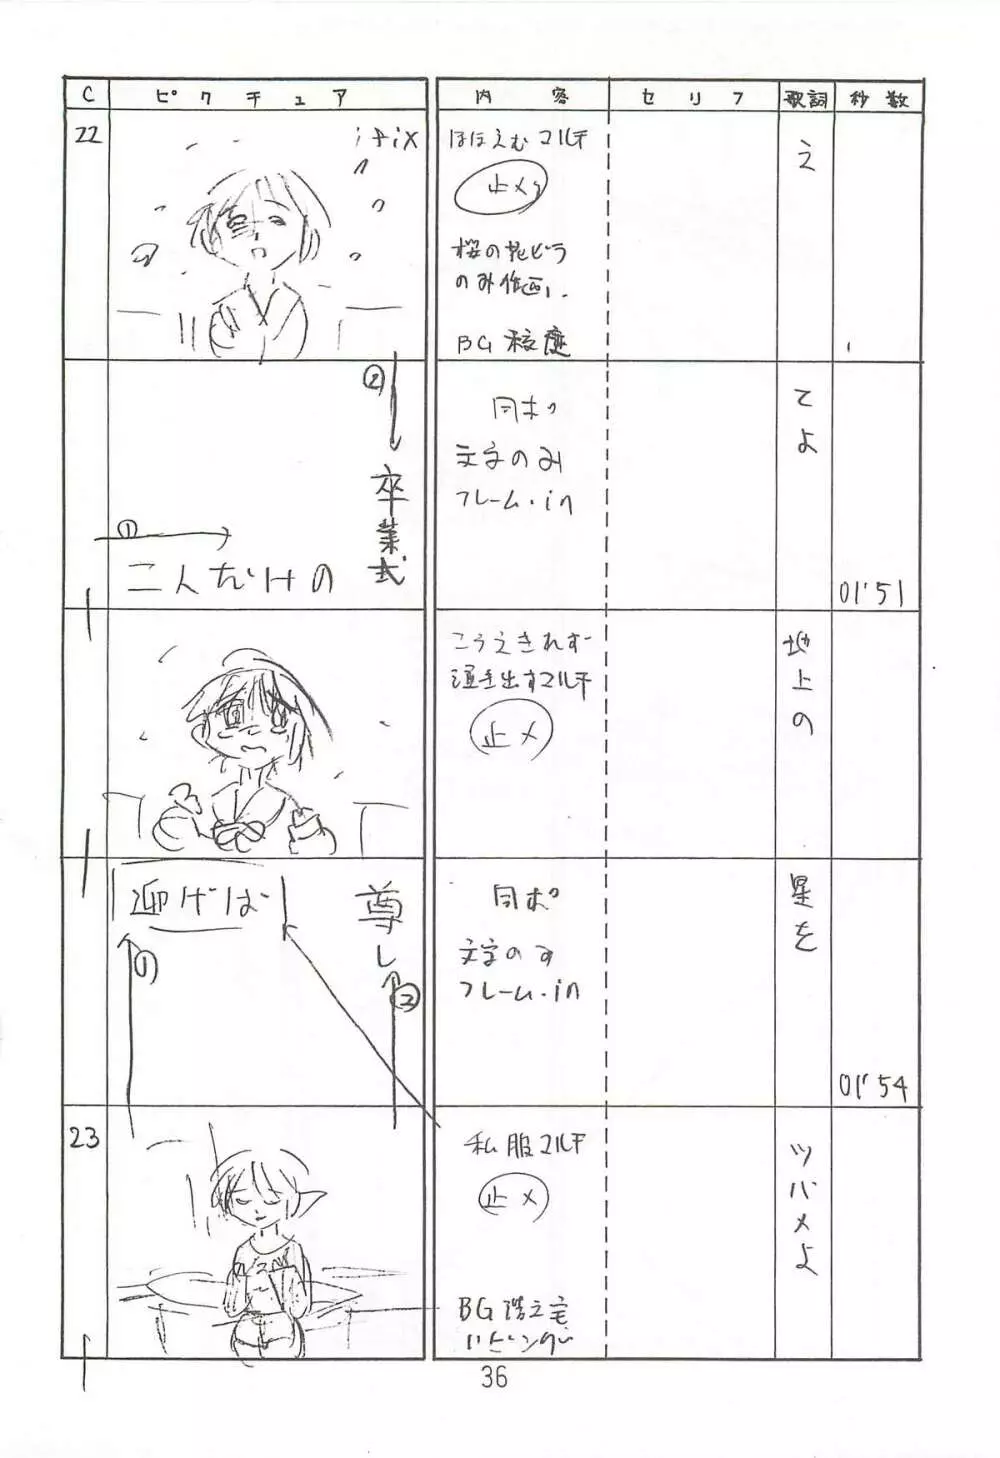 C ピクチュア 内容 セリフ 歌詞 秒数
22
ほほえむマルチ
止メ
桜の花ビラ
のみ作画、
BG 校庭
え
②
卒業式
①
二人だけの
同ポ
文字のみ
フレーム・in
てよ
01'51
こらえきれず
泣き出すマルチ
止メ
地上の
迎げば
尊し
①
②
同ポ
文字のみ
フレーム・in
星を
01'54
23
私服マルチ
止メ
BG 浩之宅
リビング
ツバメよ
36